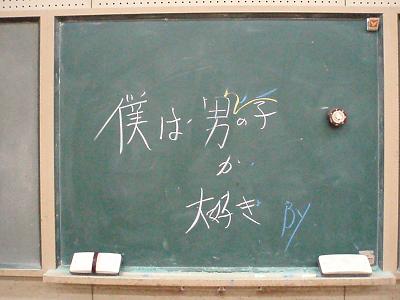 僕は男の子
が
大好き BY